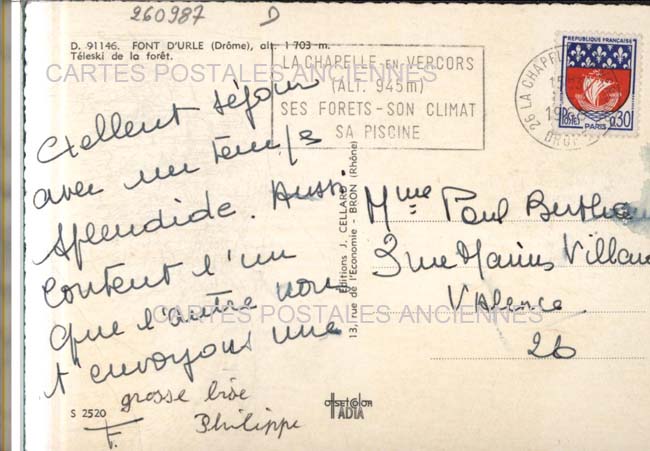 260987 D
D. 91146. FONT D'URLE (Drôme), alt. 1 703 m.
Téleski de la forêt.
CARTES POSTALES ANCIENNES
LA CHAPELLE-EN-VERCORS
(ALT. 945m)
SES FORETS-SON CLIMAT
SA PISCINE
26 LA CHAPEL
15
19
DRO
REPUBLIQUE FRANÇAISE
POSTES 0,30
PARIS
Excellent séjour
avec un temps
splendide. Aussi
content l'un
que l'autre nous
t'envoyons une
grosse bise
Philippe
F.
Editions J. CELLARD
13, rue de l'Economie - BRON (Rhône)
Mme Paul Berth
3 rue Marius Villar
Valence
26
CARTES POSTALES ANCIENNES
S 2520
OFFSETCOLOR
IADIA